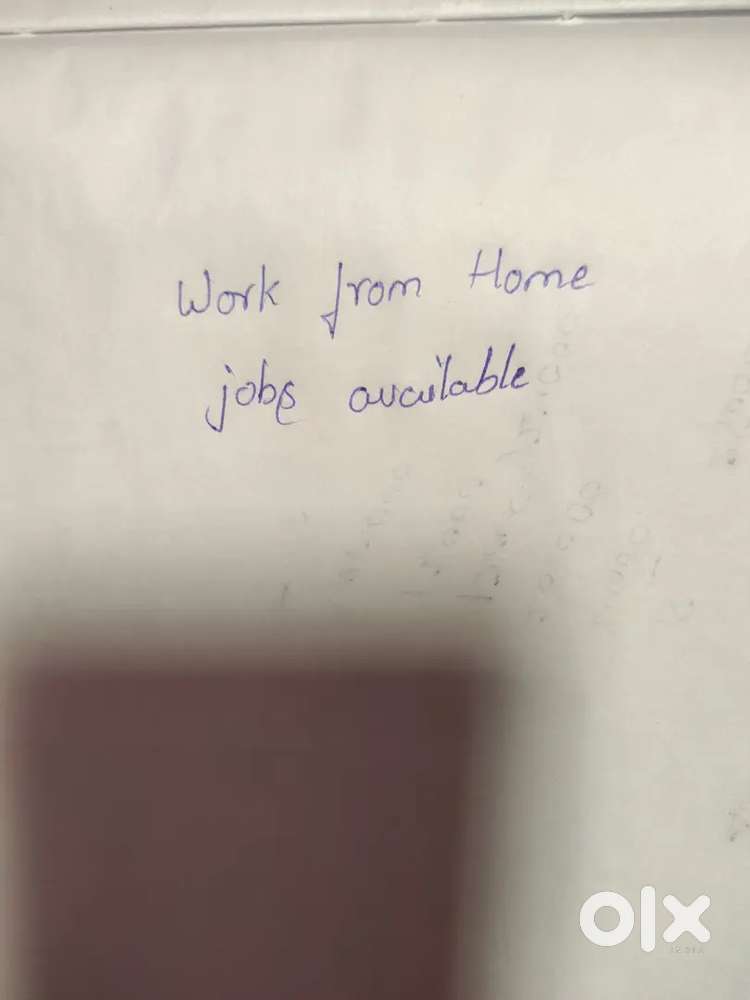 Work from Home
jobs available
olx